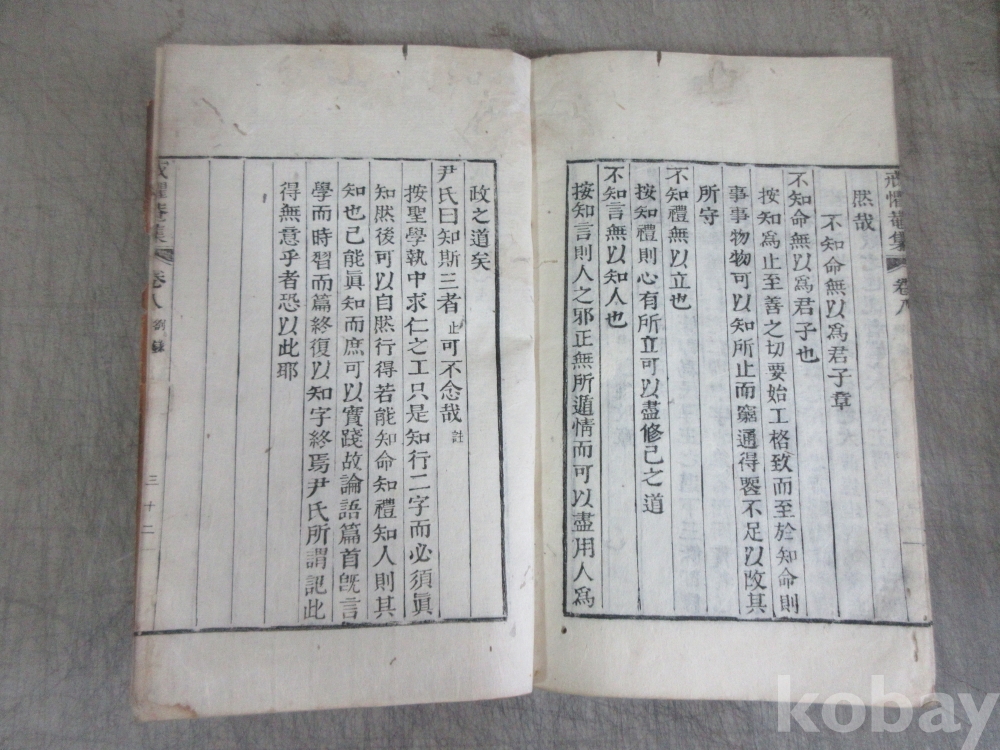 戒懼菴集 卷八
然哉
不知命無以爲君子章
不知命無以爲君子也
按知爲止至善之切要始工格致而至於知命則
事事物物可以知所止而窮通得喪不足以改其
所守
不知禮無以立也
按知禮則心有所立可以盡修己之道
不知言無以知人也
按知言則人之邪正無所遁情而可以盡用人爲
政之道矣
尹氏曰知斯三者 止 可不念哉 註
按聖學執中求仁之工只是知行二字而必須眞
知然後可以自然行得若能知命知禮知人則其
知也已能眞知而庶可以實踐故論語篇首旣言
學而時習而篇終復以知字終焉尹氏所謂記此
得無意乎者恐以此耶
戒懼菴集 卷八 箚錄 三十二
kobay